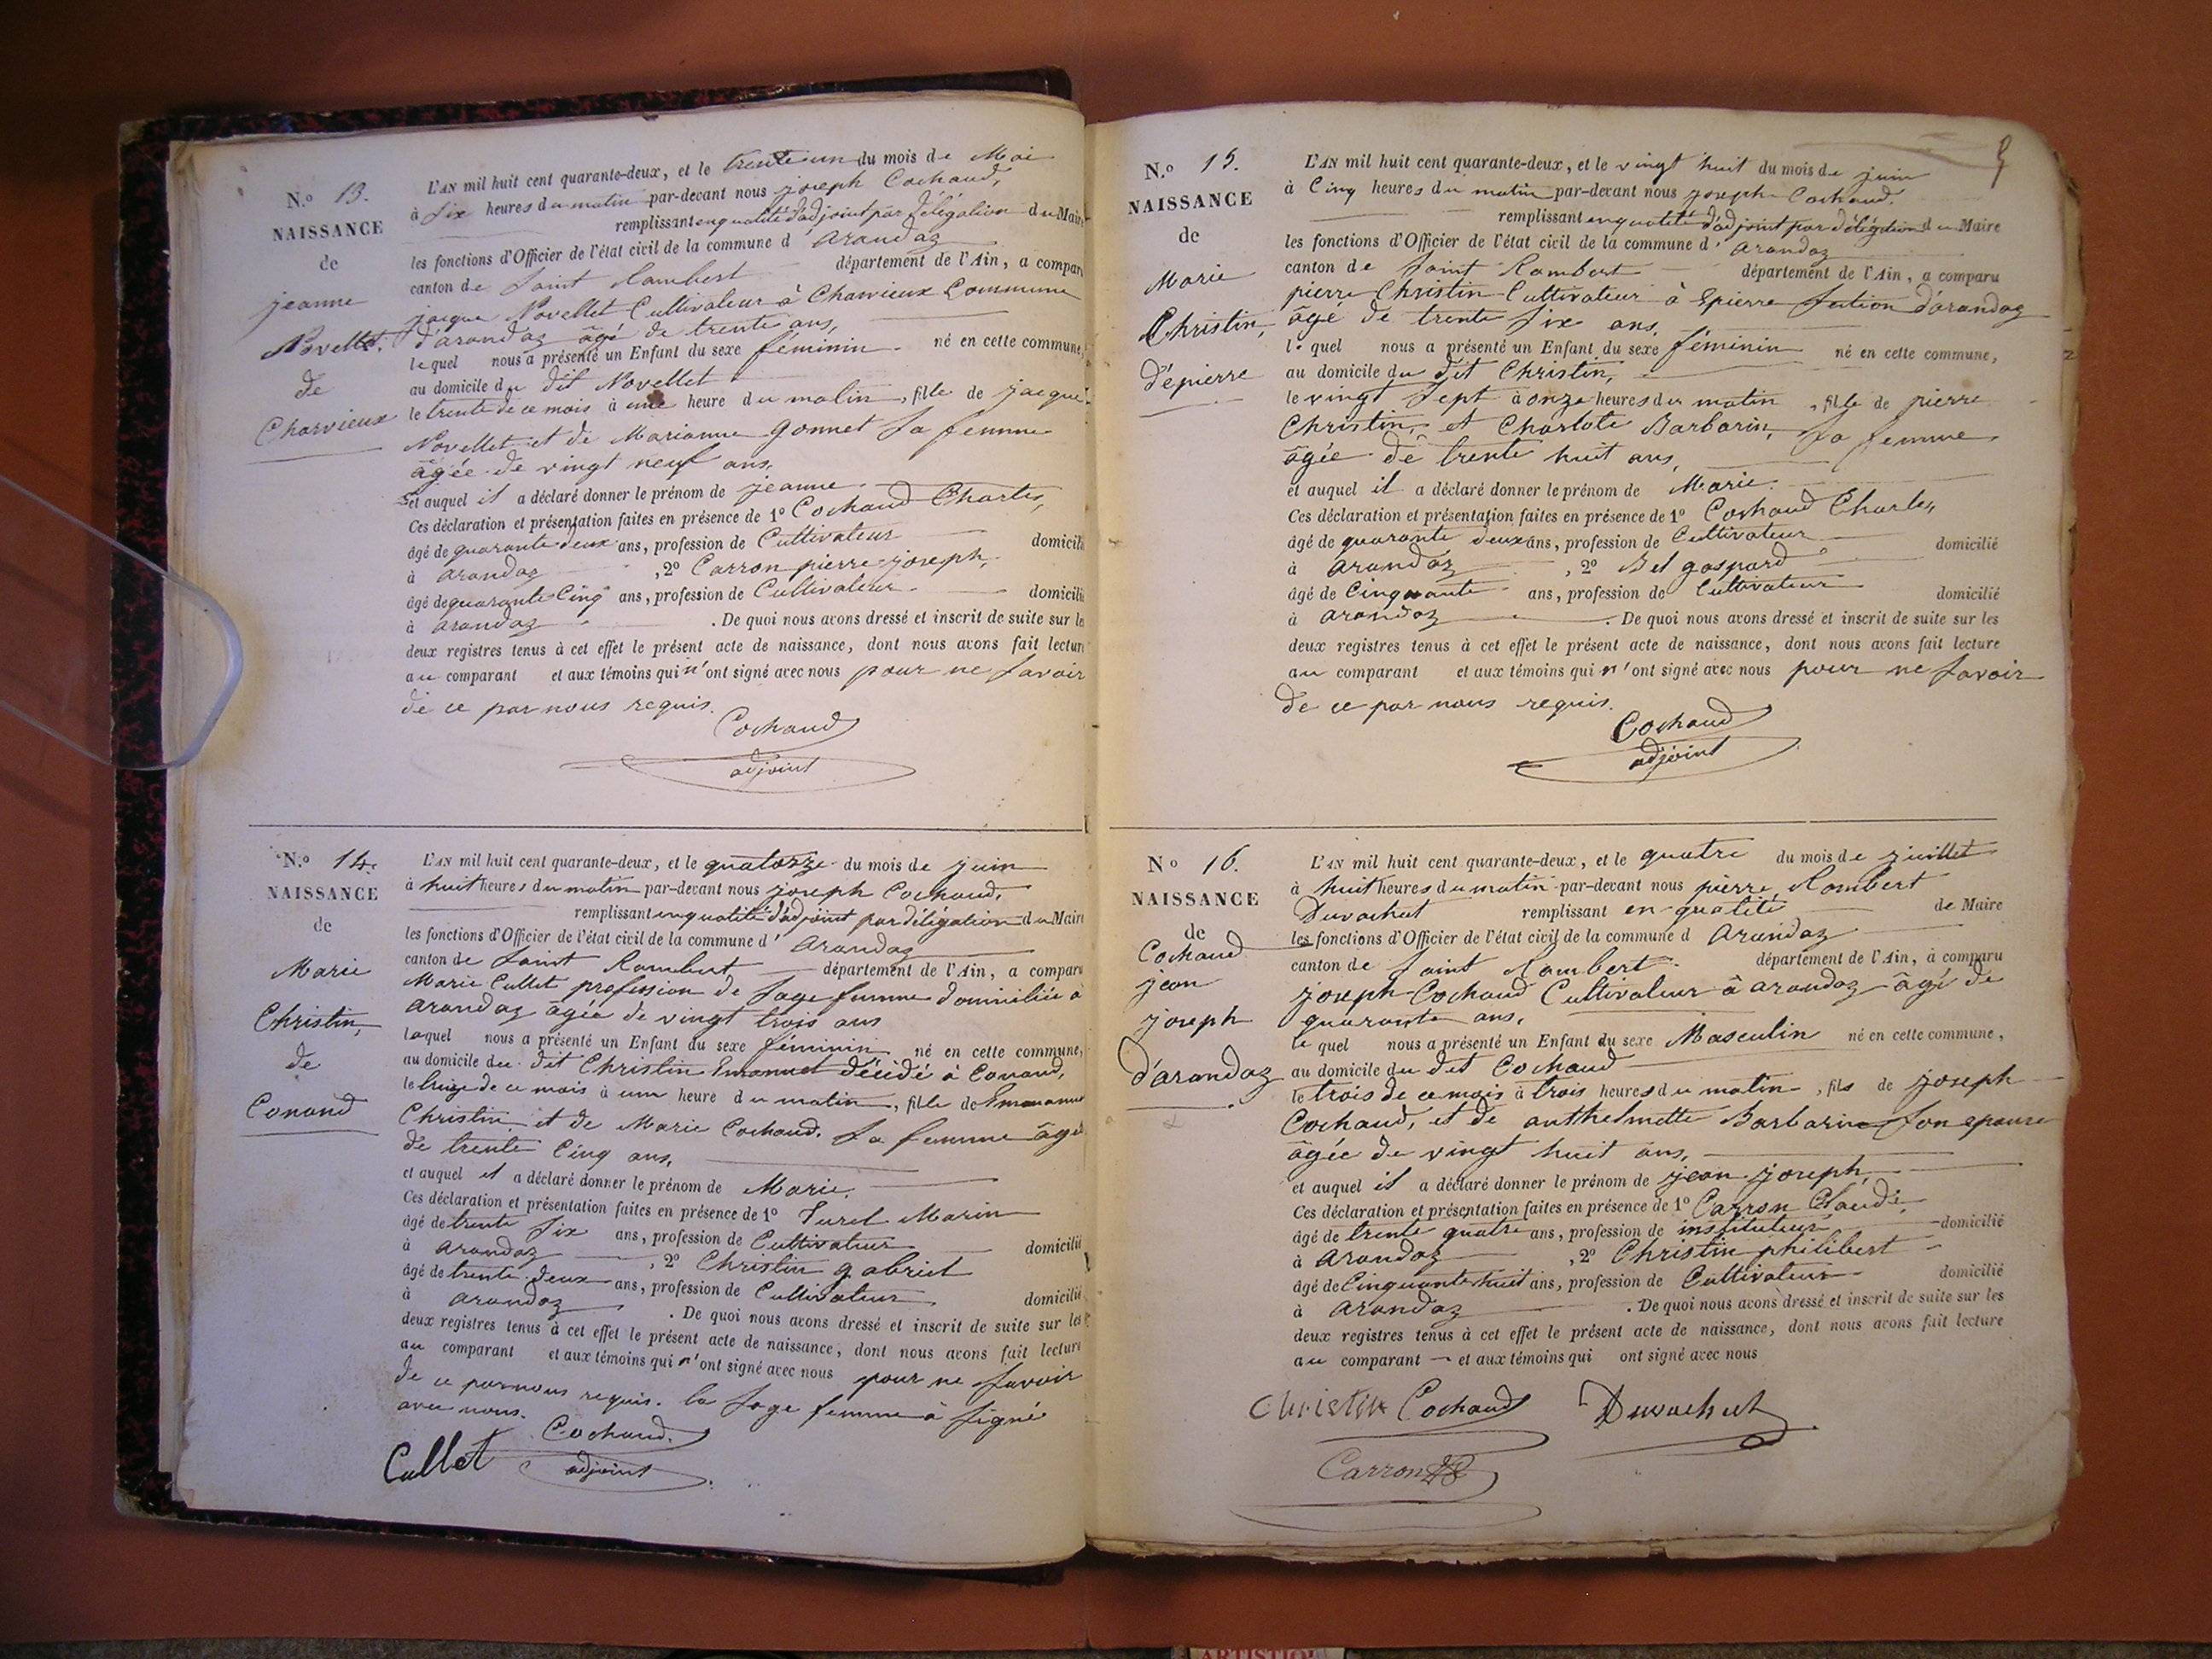 N.o 13.
NAISSANCE
de
jeanne
Novellet.
de
Charvieux
L'AN mil huit cent quarante-deux, et le trente un du mois de Mai
à six heures du matin par-devant nous joseph Cochaud,
remplissant en qualité d'adjoint par délégation du Maire
les fonctions d'Officier de l'état civil de la commune d'arandaz
canton de Saint Rambert département de l'Ain, a comparu
jacque Novellet Cultivateur à Charvieux Commune
d'arandaz âgé de trente ans,
lequel nous a présenté un Enfant du sexe féminin né en cette commune,
au domicile du dit Novellet
le trente de ce mois à une heure du matin, fille de jacque
Novellet et de Marianne gonnet sa femme
âgée de vingt neuf ans,
et auquel il a déclaré donner le prénom de jeanne
Ces déclaration et présentation faites en présence de 1o Cochaud Charles,
âgé de quarante deux ans, profession de Cultivateur domicilié
à arandaz, 2o Carron pierre joseph,
âgé de quarante Cinq ans, profession de Cultivateur domicilié
à arandaz. De quoi nous avons dressé et inscrit de suite sur les
deux registres tenus à cet effet le présent acte de naissance, dont nous avons fait lecture
au comparant et aux témoins qui n'ont signé avec nous pour ne savoir
de ce par nous requis.
Cochaud
adjoint
N.o 14.
NAISSANCE
de
Marie
Christin,
de
Conand
L'AN mil huit cent quarante-deux, et le quatorze du mois de juin
à huit heures du matin par-devant nous joseph Cochaud,
remplissant en qualité d'adjoint par délégation du Maire
les fonctions d'Officier de l'état civil de la commune d'arandaz
canton de Saint Rambert département de l'Ain, a comparu
Marie Cullet profession de sage femme domiciliée à
arandaz âgée de vingt trois ans
laquel nous a présenté un Enfant du sexe féminin né en cette commune,
au domicile du dit Christin Emanuel décidé à Conand,
le treize de ce mois à une heure du matin, fille de Emanuel
Christin, et de Marie Cochaud, sa femme âgée
de trente Cinq ans,
et auquel il a déclaré donner le prénom de Marie.
Ces déclaration et présentation faites en présence de 1o Marin
âgé de trente six ans, profession de Cultivateur domicilié
à arandaz, 2o Christin gabriel
âgé de trente deux ans, profession de Cultivateur domicilié
à arandaz. De quoi nous avons dressé et inscrit de suite sur les
deux registres tenus à cet effet le présent acte de naissance, dont nous avons fait lecture
au comparant et aux témoins qui n'ont signé avec nous pour ne savoir
de ce par nous requis. la sage femme à signé
avec nous.
Cullet Cochaud.
adjoint
N.o 15.
NAISSANCE
de
Marie
Christin,
d'épierre
L'AN mil huit cent quarante-deux, et le vingt huit du mois de juin
à Cinq heures du matin par-devant nous joseph Cochaud.
remplissant en qualité d'adjoint par délégation du Maire
les fonctions d'Officier de l'état civil de la commune d'arandaz
canton de Saint Rambert département de l'Ain, a comparu
pierre Christin Cultivateur à Epierre section d'arandaz
âgé de trente six ans.
lequel nous a présenté un Enfant du sexe féminin né en cette commune,
au domicile du dit Christin,
le vingt sept à onze heures du matin, fille de pierre
Christin, et Charlote Barbarin, sa femme,
âgée de trente huit ans,
et auquel il a déclaré donner le prénom de Marie.
Ces déclaration et présentation faites en présence de 1o Cochaud Charles,
âgé de quarante deux ans, profession de Cultivateur domicilié
à arandaz, 2o Bel gaspard
âgé de Cinquante ans, profession de Cultivateur domicilié
à arandaz. De quoi nous avons dressé et inscrit de suite sur les
deux registres tenus à cet effet le présent acte de naissance, dont nous avons fait lecture
au comparant et aux témoins qui n'ont signé avec nous pour ne savoir
de ce par nous requis.
Cochaud
adjoint
N.o 16.
NAISSANCE
de
Cochaud
jean
joseph
d'arandaz
L'AN mil huit cent quarante-deux, et le quatre du mois de juillet
à huit heures du matin par-devant nous pierre Rambert
Duvachat remplissant en qualité de Maire
les fonctions d'Officier de l'état civil de la commune d arandaz
canton de Saint Rambert département de l'Ain, a comparu
joseph Cochaud Cultivateur à arandaz âgé de
quarante ans,
lequel nous a présenté un Enfant du sexe Masculin né en cette commune,
au domicile du dit Cochaud
le trois de ce mois à trois heures du matin, fils de joseph
Cochaud, et de anthelmette Barbarin son epouse
âgée de vingt huit ans,
et auquel il a déclaré donner le prénom de jean joseph,
Ces déclaration et présentation faites en présence de 1o Carron Claude,
âgé de trente quatre ans, profession de instituteur domicilié
à arandaz, 2o Christin philibert
âgé de Cinquante huit ans, profession de Cultivateur domicilié
à arandaz. De quoi nous avons dressé et inscrit de suite sur les
deux registres tenus à cet effet le présent acte de naissance, dont nous avons fait lecture
au comparant et aux témoins qui ont signé avec nous
Christin Cochaud Duvachat
Carron